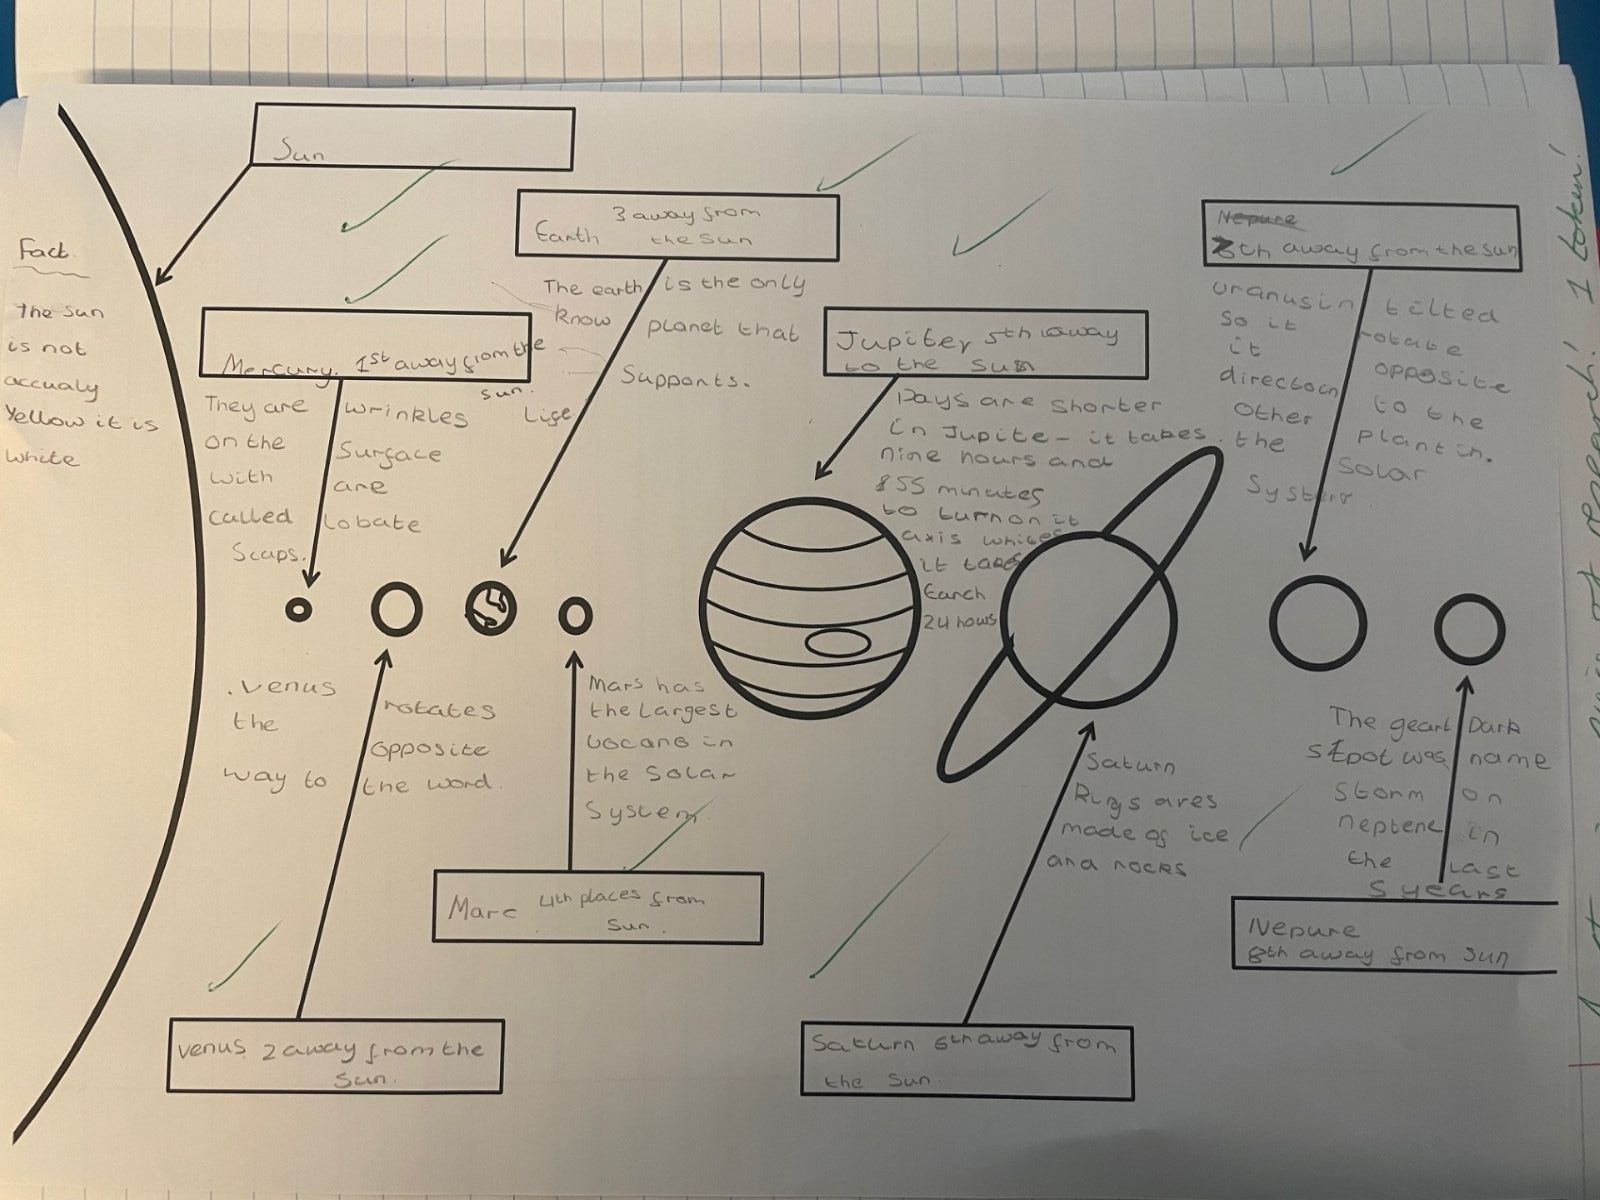 Sun
Fact.
The Sun
is not
accualy
Yellow it is
white
Mercury. 1st away from the
sun.
They are wrinkles
on the Surface
with are
called lobate
Scaps.
3 away from
Earth the sun
The earth is the only
know planet that
Supports.
Life
Jupiter 5th away
to the Sun
Days are shorter
in Jupite - it takes
nine hours and
55 minutes
to turn on it
axis whices
it takes
Earth
24 hours
Nepure
8th away from the sun
uranus in tilted
so it rotate
it opposite
direction to the
Other plant in.
the Solar
System
.venus rotates
the opposite
way to the word.
Mars has
the Largest
vocano in
the Solar
System.
Marc 4th places from
Sun.
Venus 2 away from the
Sun.
Saturn
Rings ares
made of ice
and rocks
Saturn 6th away from
the Sun.
The geart Dark
stpot was name
Storm on
neptene in
the Last
5 years
Nepure
8th away from Sun
of research! 1 token!